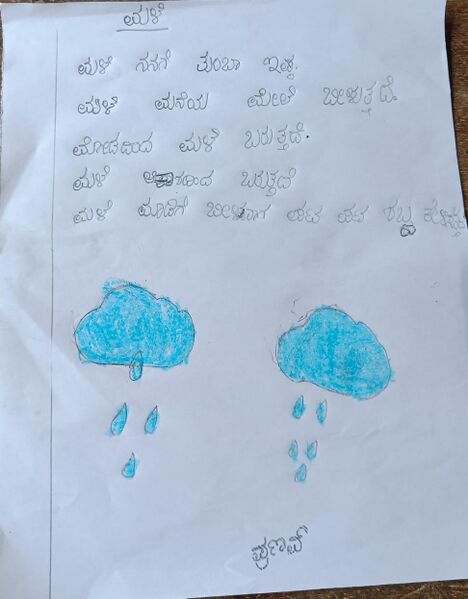 ಮಳೆ
ಮಳೆ ನನಗೆ ತುಂಬಾ ಇಷ್ಟ.
ಮಳೆ ಮನೆಯ ಮೇಲೆ ಬೀಳುತ್ತದೆ.
ಮೋಡದಿಂದ ಮಳೆ ಬರುತ್ತದೆ.
ಮಳೆ ಆಕಾಶದಿಂದ ಬರುತ್ತದೆ
ಮಳೆ ಬೀಳುವಾಗ ಪಟ ಪಟ ಶಬ್ದ
ಪ್ರಣವ್